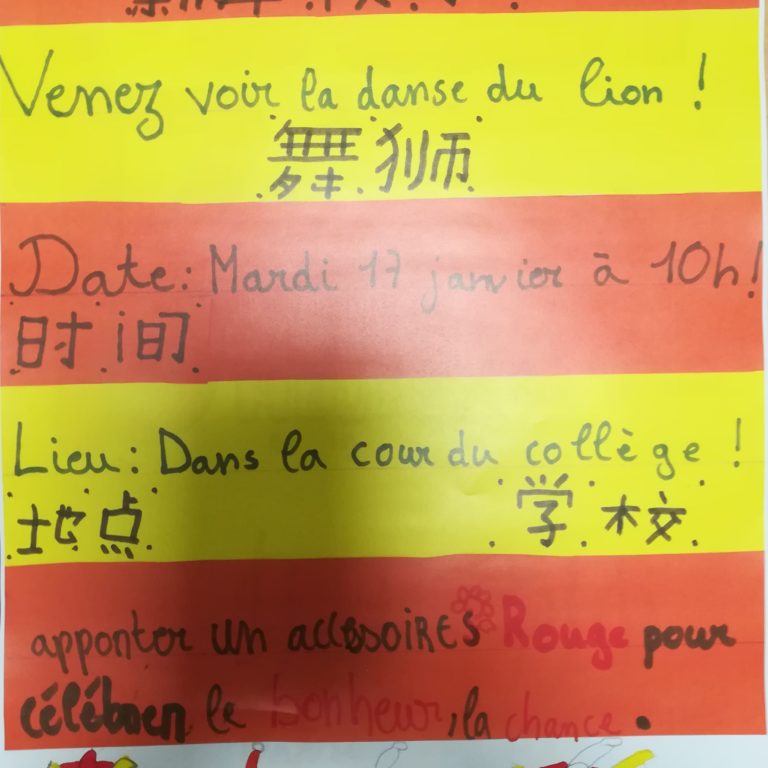 Venez voir la danse du lion !
舞狮
Date: Mardi 17 janvier à 10h!
时间
Lieu: Dans la cour du collège !
地点 学校
apponter un accesoires Rouge pour
célébrer le bonheur, la chance.